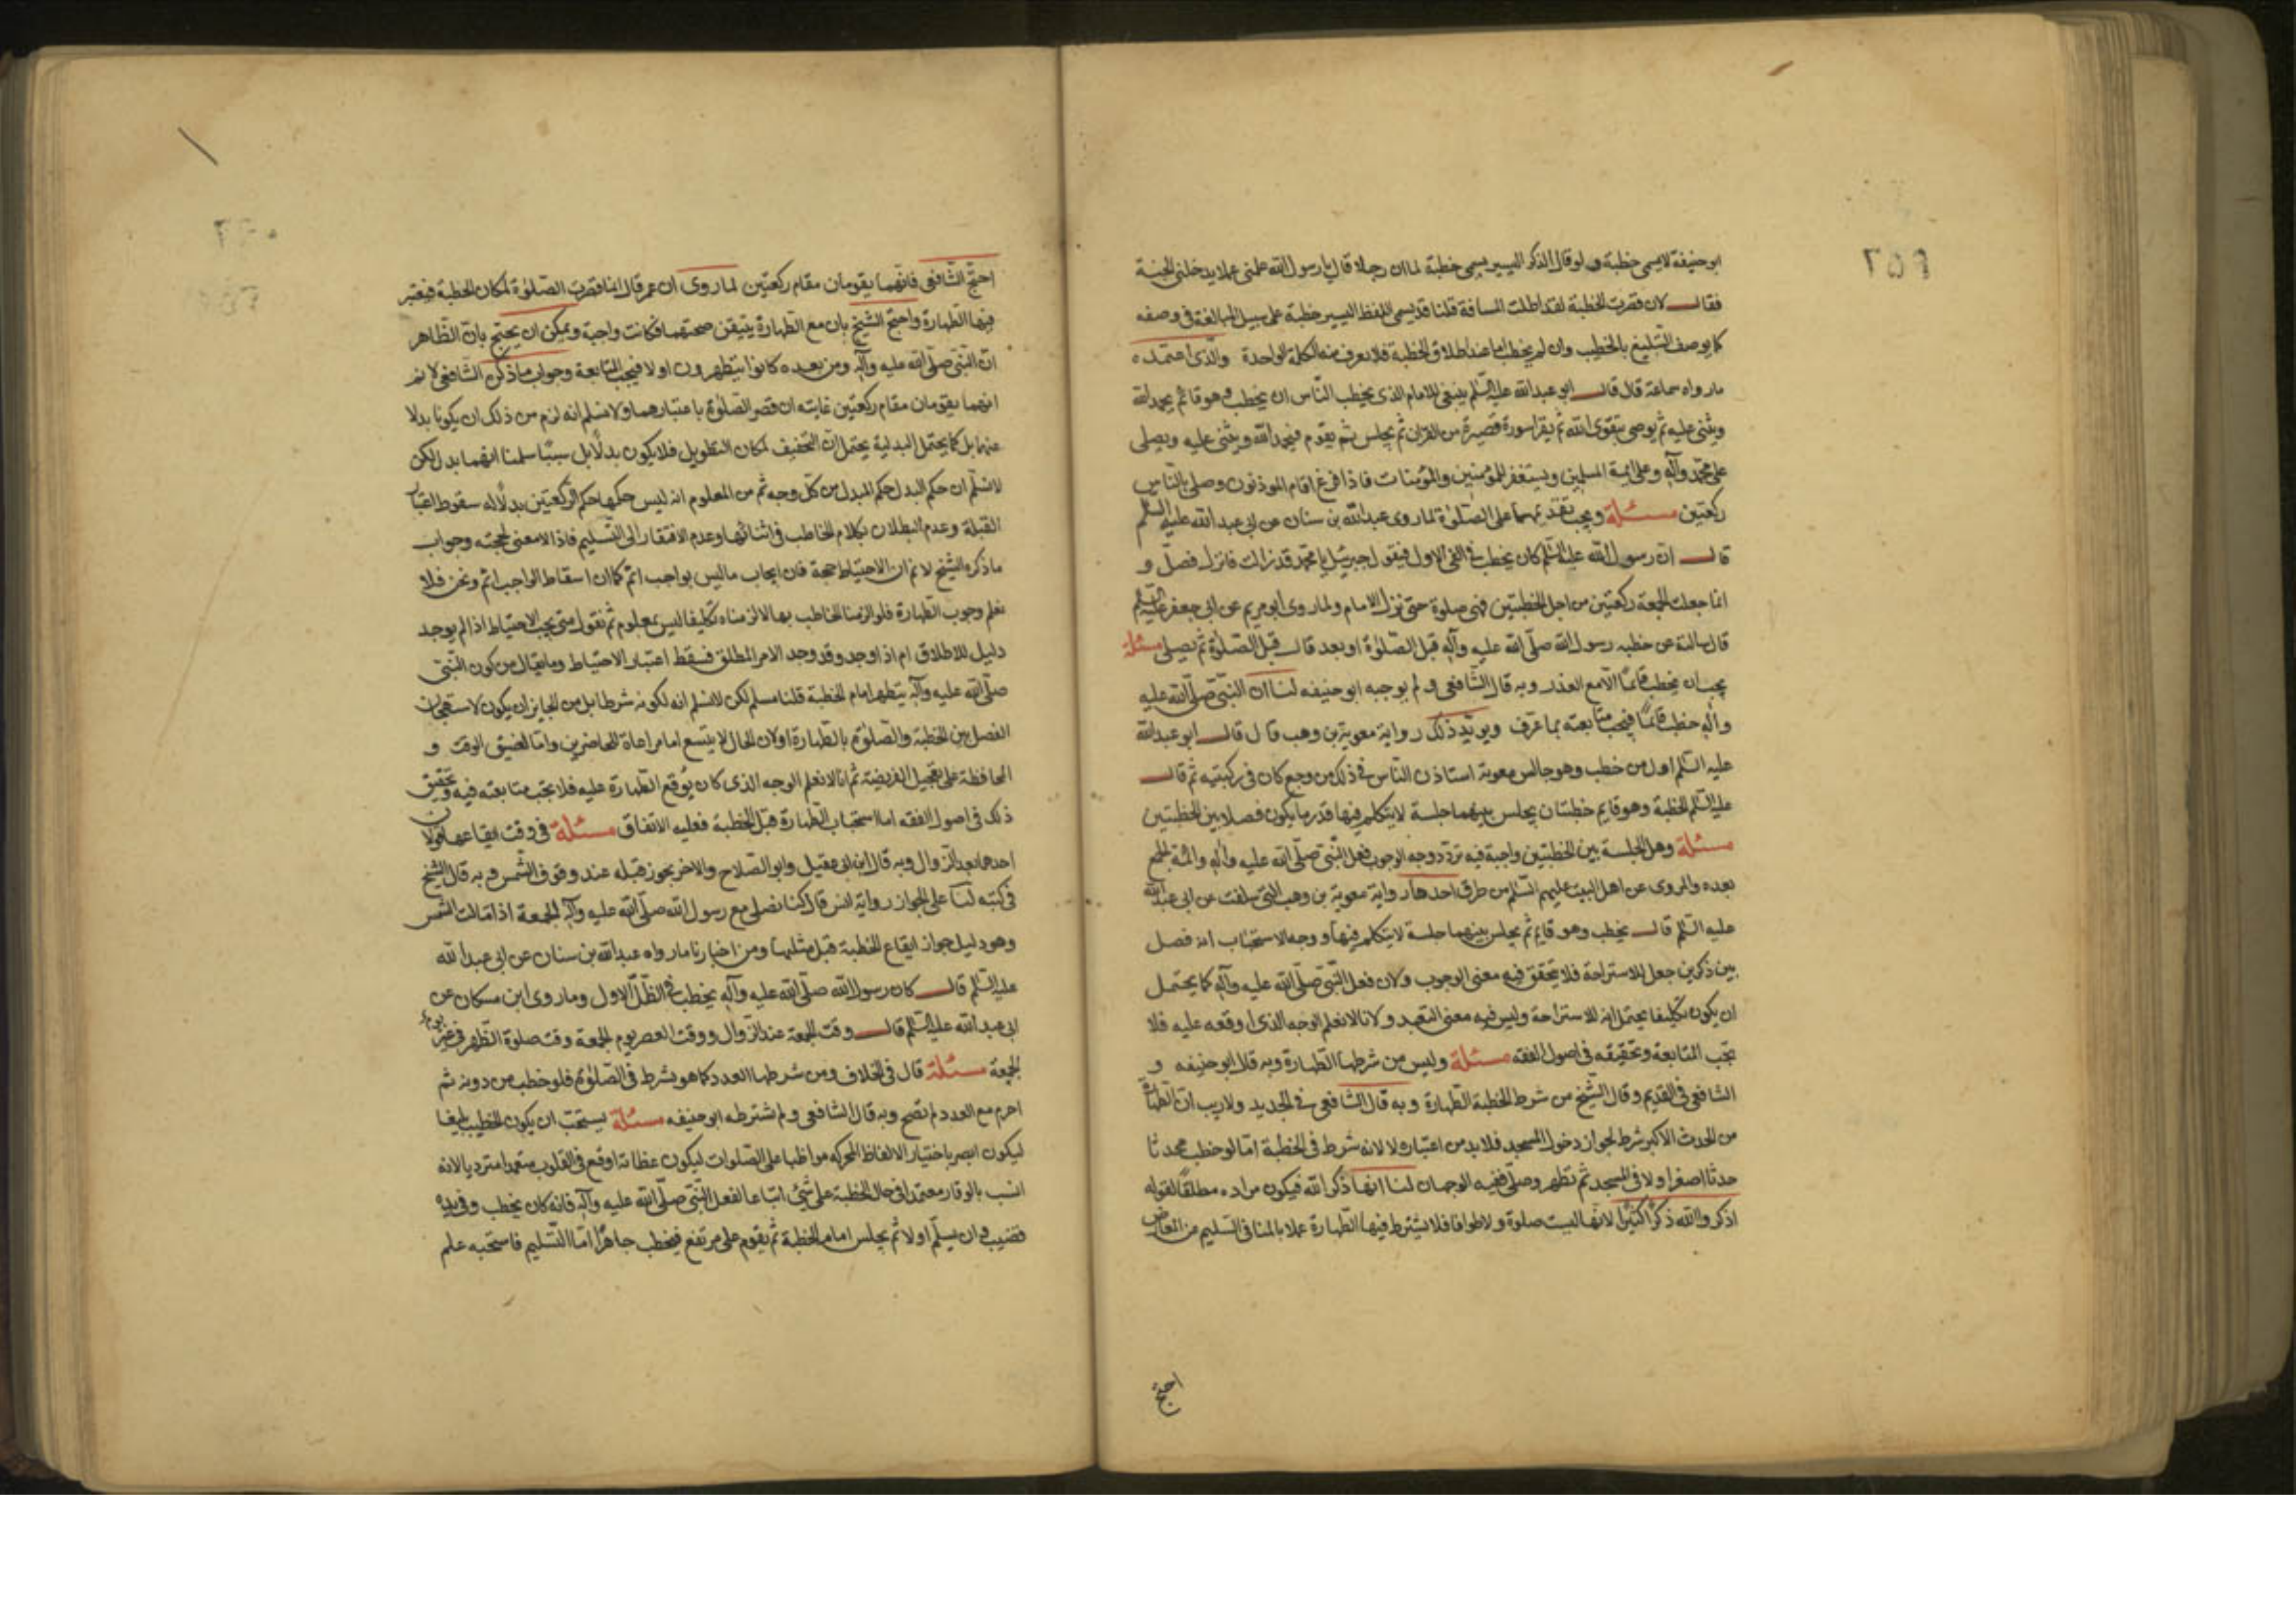 ٢٥٩
ابو حنيفة لا يسمى خطبة ولو قال الذكر اليسير يسمى خطبة لما ان رجلا قال يا رسول الله علمنى عملا يدخلنى الجنة
فقال لان قصرت الخطبة لقد اطلت المسافة قلنا قد يسمى اللفظ اليسير خطبة على سبيل المبالغة فى وصفه
كما يوصف التبليغ بالخطيب وان لم يخطب اما عند اطلاق الخطبة فلا يعرف منه الكلمة الواحدة والذى اعتمده
ما رواه سماعة قال قال ابو عبدالله عليه السّلم ينبغى للامام الذى يخطب النّاس ان يخطب وهو قائم يحمد الله
ويثنى عليه ثم يوصى بتقوى الله ثم يقرا سورة قصيرة من القران ثم يجلس ثم يقوم فيحمد الله ويثنى عليه ويصلى
على محمّد وآله وعلى ائمة المسلمين ويستغفر للمؤمنين والمؤمنات فاذا فرغ اقام الموذنون وصلى بالناس
ركعتين مسئلة ويجب تقديمهما على الصّلوة لما روى عبدالله بن سنان عن ابى عبدالله عليه السلم
قال انّ رسول الله عليه السّلم كان يخطب فى الفئ الاول فيقول جبرئيل يا محمّد قد زالت فانزل فصلّ و
انما جعلت الجمعة ركعتين من اجل الخطبتين فهى صلوة حتى نزل الامام ولما روى ابو مريم عن ابى جعفر عليه السّلم
قال سالته عن خطبه رسول الله صلّى الله عليه وآله قبل الصّلوة او بعد قال قبل الصّلوة ثم يصلى مسئلة
يجب ان يخطب قائمًا الّا مع العذر وبه قال الشّافعى ولم يوجبه ابو حنيفه لنا ان النّبىّ صلّى الله عليه
وآله خطب قائمًا فيجب متابعته بما عرف ويويّد ذلك رواية معوية بن وهب قال قال ابو عبدالله
عليه السّلم اول من خطب وهو جالس معوية استاذن النّاس فى ذلك من وجع كان فى ركبتيه ثم قال
عليه السّلم الخطبة وهو قايم خطبتان يجلس بينهما جلسة لا يتكلم فيها قدر ما يكون فصلا بين الخطبتين
مسئلة وهل الجلسة بين الخطبتين واجبة فيه تردّد وجه الوجوب فعل النّبىّ صلّى الله عليه وآله وائمة الجمع
بعده والمروى عن اهل البيت عليهم السّلم من طرق احدها رواية معوية بن وهب التى سلفت عن ابى عبدالله
عليه السّلم قال يخطب وهو قايم ثم يجلس بينهما جلسة لا يتكلم فيها ووجه الاستحباب انه فصل
بين ذكرين جعل للاستراحة فلا يتحقق فيه معنى الوجوب ولان فعل النّبىّ صلّى الله عليه وآله كما يحتمل
ان يكون تكليفا يحتمل انه للاستراحة وليس فيه معنى التعبد ولانا لا نعلم الوجه الذى اوقعه عليه فلا
تجب المتابعة وتحقيقه فى اصول الفقه مسئلة وليس من شرطها الطّهارة وبه قال ابو حنيفه و
الشافعى فى القديم وقال الشّيخ من شرط الخطبة الطّهارة وبه قال الشّافعى فى الجديد ولا ريب ان الطّهارة
من الحدث الاكبر شرط لجواز دخول المسجد فلا بد من اعتباره لا لانه شرط فى الخطبة امّا لو خطب محدثا
حدثا اصغر او لا فى المسجد ثم تطهر وصلّى ففيه الوجهان لنا انها ذكر الله فيكون مراده مطلقًا لقوله
اذكروالله ذكرًا كثيرًا لانّها ليست صلوة ولا طوافا فلا يشترط فيها الطّهارة عملا بالمنافى التسليم من المعارض
احتج
احتجّ الشّافعى فانّهما يقومان مقام ركعتين لما روى ان عمر قال انما قصرت الصّلوة لمكان الخطبة فيعتبر
فيها الطّهارة واحتج الشيخ بان مع الطّهارة يتيقن صحتهما فكانت واجبة ويمكن ان يحتج بانّ الظّاهر
انّ النّبىّ صلّى الله عليه وآله ومن بعده كانوا يتطهرون اولا فيجب المتابعة وجواب ما ذكره الشّافعى لا نم
انهما يقومان مقام ركعتين غايته ان قصر الصّلوة باعتبارهما ولا نسلم انه لزم من ذلك ان يكونا بدلا
عنهما بل كما يحتمل البدلية يحتمل انّ التخفيف لمكان التطويل فلا يكون بدلًا بل سببًا سلمنا انهما بدل لكن
لا نسلّم ان حكم البدل حكم المبدل من كلّ وجه ثم من المعلوم انه ليس حكمها حكم الرّكعتين بدلالة سقوط اعتبار
القبلة وعدم البطلان بكلام الخاطب فى اثنائها وعدم الافتقار الى التّسليم فاذا لا معنى لحجته وجواب
ما ذكره الشيخ لا نم ان الاحتياط حجة فان ايجاب ما ليس بواجب اثم كما ان اسقاط الواجب اثم ونحن فلا
نعلم وجوب الطّهارة فلو الزمنا الخاطب بها لالزمناه تكليفا ليس بمعلوم ثم نقول متى يجب الاحتياط اذا لم يوجد
دليل للاطلاق ام اذا وجد وقد وجد الامر المطلق فسقط اعتبار الاحتياط وما يقال من كون النّبىّ
صلّى الله عليه وآله يتطهر امام الخطبة قلنا مسلم لكن لا نسلم انه لكونه شرطا بل من الجايز ان يكون لاستهجان
الفصل بين الخطبة والصّلوة بالطّهارة او لان الحال لا يتسع اما مراعاة للحاضرين واما لضيق الوقت و
المحافظة على تعجيل الفريضة ثم انا لا نعلم الوجه الذى كان يوقع الطّهارة عليه فلا تجب متابعته فيه وتحقيق
ذلك فى اصول الفقه اما استحباب الطّهارة قبل الخطبة فعليه الاتفاق مسئلة فى وقت ايقاعها قولان
احدهما بعد الزّوال وبه قال ابن ابى عقيل وابو الصّلاح والاخر يجوز قبله عند وقوف الشّمس وبه قال الشّيخ
فى كتبه لنا على الجواز رواية انس قال كنا نصلى مع رسول الله صلّى الله عليه وآله الجمعة اذا مالت الشمس
وهو دليل جواز ايقاع الخطبة قبل مثلها ومن اخبارنا ما رواه عبدالله بن سنان عن ابى عبدالله
عليه السّلم قال كان رسول الله صلّى الله عليه وآله يخطب فى الظّلّ الاول وما روى ابن مسكان عن
ابى عبدالله عليه السّلم قال وقت الجمعة عند الزّوال ووقت العصر يوم الجمعة وقت صلوة الظّهر فى غير يوم
الجمعة مسئلة قال فى الخلاف ومن شرطها العدد كما هو بشرط فى الصّلوة فلو خطب من دونه ثم
احرم مع العدد لم تصح وبه قال الشافعى ولم اشترطه ابو حنيفه مسئلة يستحبّ ان يكون الخطيب بليغا
ليكون ابصر باختيار الالفاظ المحركه مواظبا على الصّلوات ليكون عظاته اوقع فى القلوب متعمما مترديا لانه
انسب بالوقار معتمدا فى حال الخطبة على شئ اتباعا لفعل النّبىّ صلّى الله عليه وآله فانه كان يخطب وفى يده
قضيب وان يسلّم اولا ثم يجلس امام الخطبة ثم يقوم على مرتفع فيخطب جاهرًا امّا التّسليم فاستحبه علم